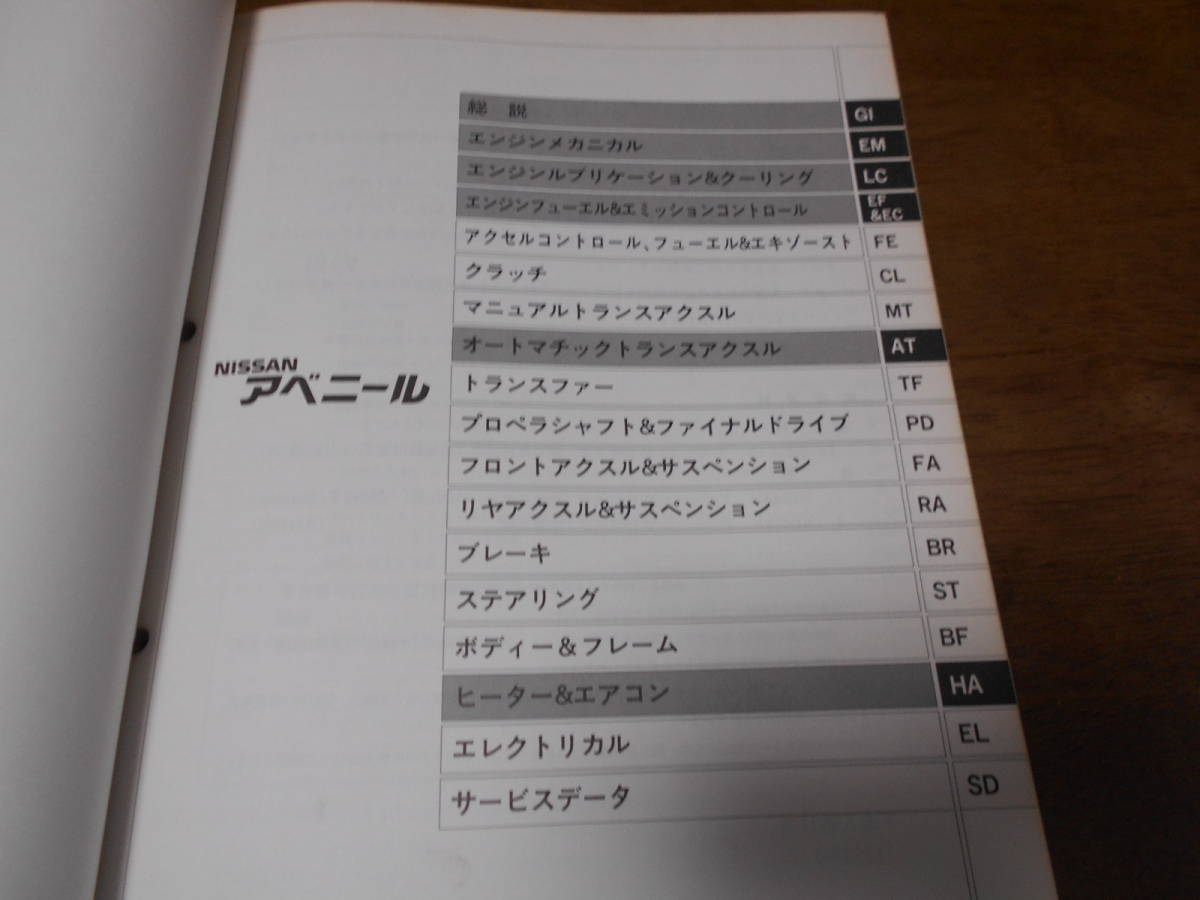 NISSAN
アベニール
総説 GI
エンジンメカニカル EM
エンジンルブリケーション&クーリング LC
エンジンフューエル&エミッションコントロール EF &EC
アクセルコントロール、フューエル&エキゾースト FE
クラッチ CL
マニュアルトランスアクスル MT
オートマチックトランスアクスル AT
トランスファー TF
プロペラシャフト&ファイナルドライブ PD
フロントアクスル&サスペンション FA
リヤアクスル&サスペンション RA
ブレーキ BR
ステアリング ST
ボディー&フレーム BF
ヒーター&エアコン HA
エレクトリカル EL
サービスデータ SD